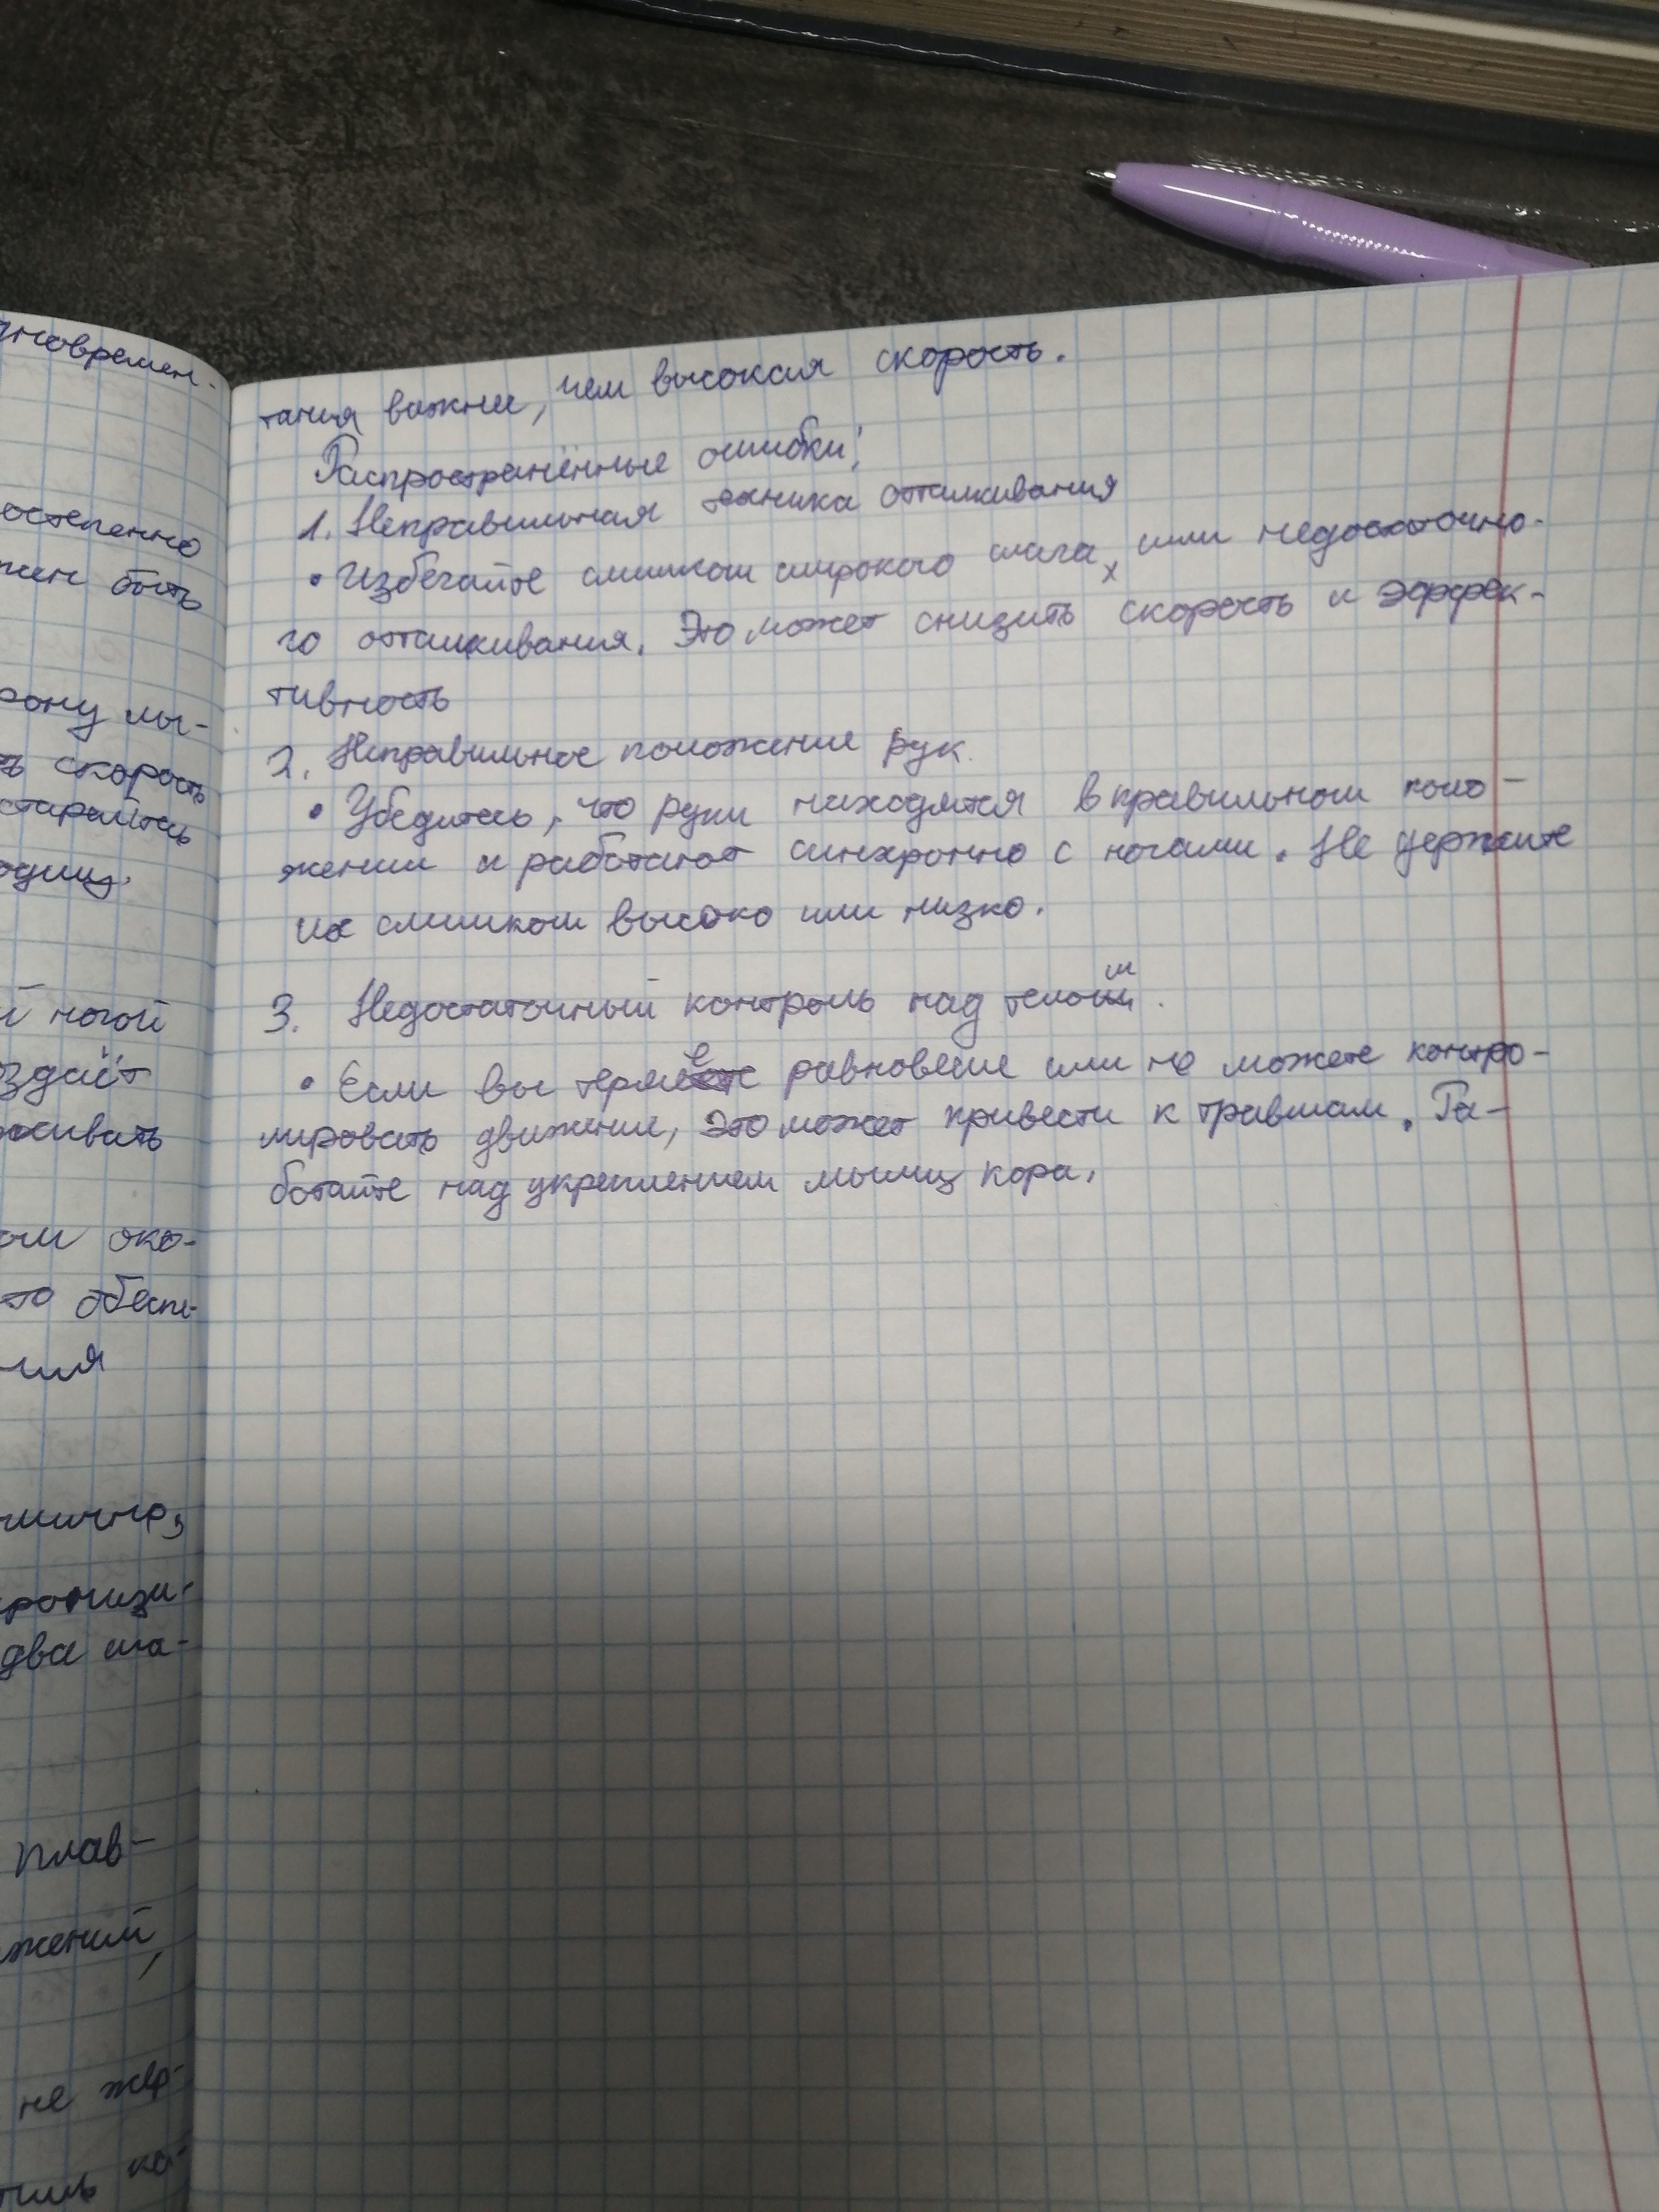 дновремен-
остепенно
жен быть
рону лы-
ть скорость
старайтесь
одищ.
й ногой
здаёт
живать
ом око-
это обеспе-
ния
мично,
ронизи-
два ша-
плав-
жений,
не жер-
ка-
тания важнее, чем высокая скорость.
Распространённые ошибки:
1. Неправильная техника отталкивания
• Избегайте слишком широкого шага, или недостаточно-
го отталкивания. Это может снизить скорость и эффек-
тивность
2. Неправильное положение рук.
• Убедитесь, что руки находятся в правильном поло-
жении и работают синхронно с ногами. Не держите
их слишком высоко или низко.
3. Недостаточный контроль над телом.
• Если вы теряете равновесие или не можете контро-
лировать движение, это может привести к травмам. Ра-
ботайте над укреплением мышц кора.